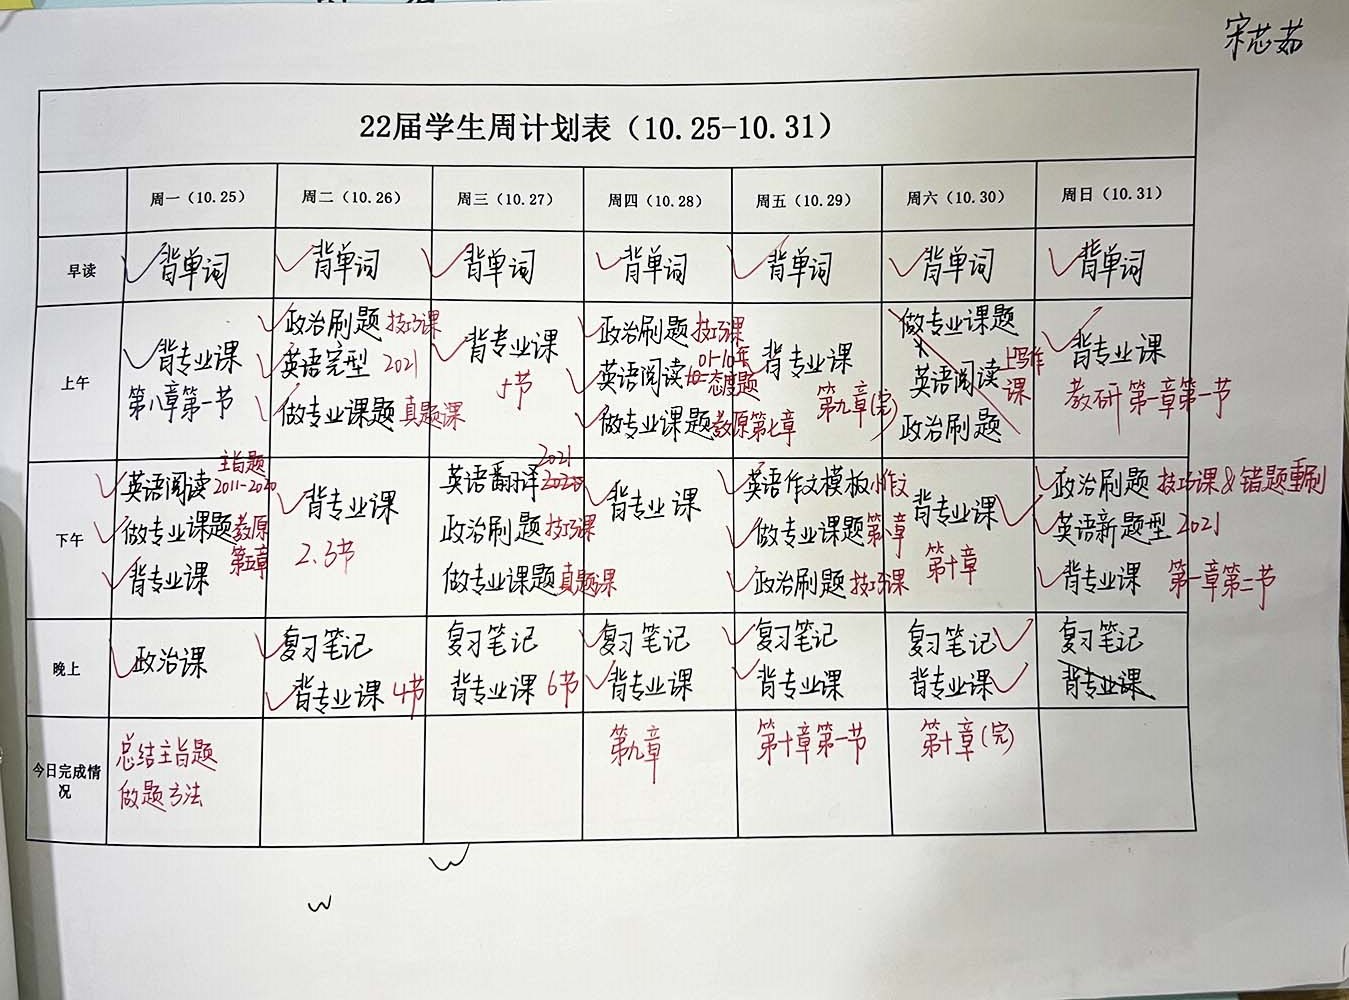 宋芯茹
22届学生周计划表（10.25-10.31）
周一（10.25） 周二（10.26） 周三（10.27） 周四（10.28） 周五（10.29） 周六（10.30） 周日（10.31）
早读 背单词 背单词 背单词 背单词 背单词 背单词 背单词
上午
背专业课
第八章第一节
政治刷题 技巧课
英语完型 2021
做专业课题 真题课
背专业课
5节
政治刷题 技巧课
英语阅读 01-10年
态度题
做专业课题 教原第七章
背专业课
第九章(完)
做专业课题
英语阅读 上写作
课
政治刷题
背专业课
教研 第一章第一节
下午
英语阅读 主旨题
2011-2020
做专业课题 教原
第五章
背专业课
背专业课
2.3节
英语翻译 2021
政治刷题 技巧课
做专业课题 真题课
背专业课
英语作文模板 小作文
做专业课题
政治刷题 技巧课
背专业课
第十章
政治刷题 技巧课&错题重刷
英语新题型 2021
背专业课 第一章第二节
晚上
政治课
复习笔记
背专业课 4节
复习笔记
背专业课 6节
复习笔记
背专业课
复习笔记
背专业课
复习笔记
背专业课
复习笔记
背专业课
今日完成情
况
总结主旨题
做题方法
第九章
第十章第一节
第十章(完)